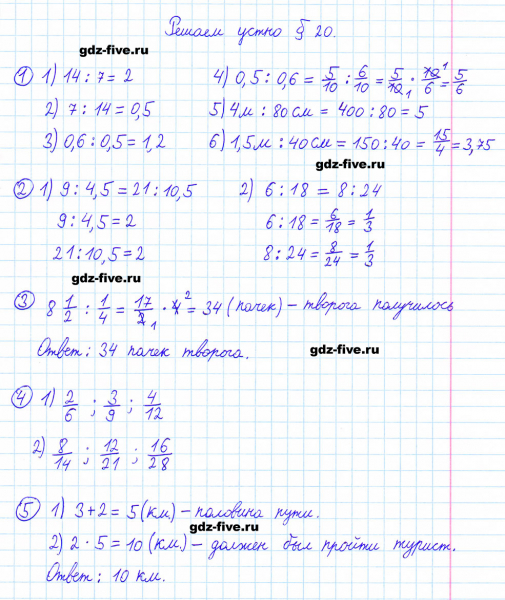 Решаем устно § 20.
gdz-five.ru
① 1) 14 : 7 = 2
4) 0,5 : 0,6 = 5/10 : 6/10 = 5/10 1 · 10 1/6 = 5/6
2) 7 : 14 = 0,5
5) 4м : 80 см = 400 : 80 = 5
3) 0,6 : 0,5 = 1,2
6) 1,5м : 40 см = 150 : 40 = 15/4 = 3,75
gdz-five.ru
② 1) 9 : 4,5 = 21 : 10,5
2) 6 : 18 = 8 : 24
9 : 4,5 = 2
6 : 18 = 6/18 = 1/3
21 : 10,5 = 2
8 : 24 = 8/24 = 1/3
gdz-five.ru
③ 8 1/2 : 1/4 = 17/2 1 · 4 2 = 34 (пачек) – творога получилось
Ответ: 34 пачек творога.
gdz-five.ru
④ 1) 2/6 ; 3/9 ; 4/12
2) 8/14 ; 12/21 ; 16/28
⑤ 1) 3 + 2 = 5 (км) – половина пути.
gdz-five.ru
2) 2 · 5 = 10 (км.) – должен был пройти турист.
Ответ: 10 км.